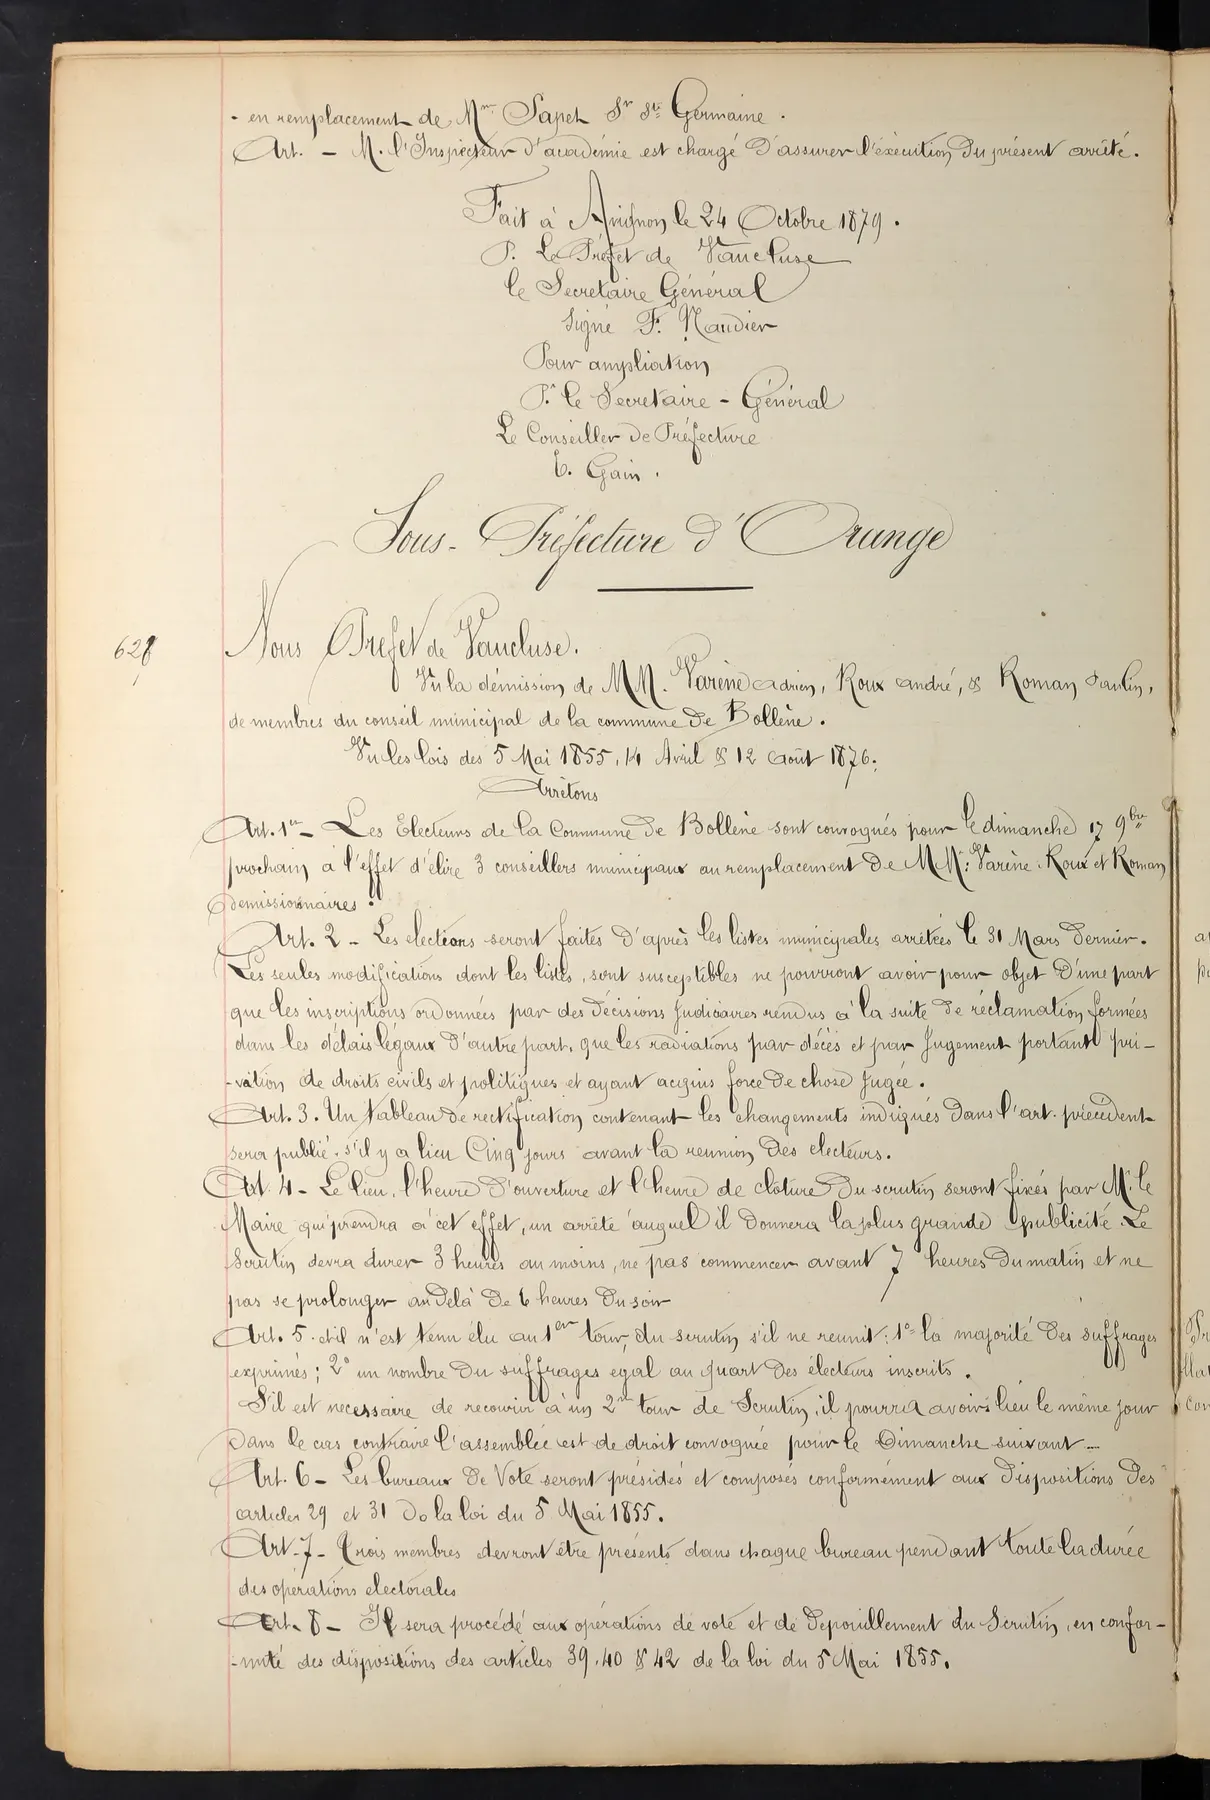 - en remplacement de Mme Papet Sr Ste Germaine .
Art. - M. l'Inspecteur d'académie est chargé d'assurer l'exécution du présent arrêté.
Fait à Avignon le 24 Octobre 1879.
P. Le Préfet de Vaucluse
le Secretaire Général
signé F. Naudier
Pour ampliation
Pr le Secretaire - Général
Le Conseiller de Préfecture
E. Gain .
Sous-Préfecture d'Orange
628
Nous Préfet de Vaucluse.
Vu la démission de MM. Varène adrien, Roux andré, & Roman Paulin,
de membres du conseil municipal de la commune de Bollène.
Vu les lois des 5 Mai 1855, 14 Avril & 12 août 1876.
Arrêtons
Art. 1er - Les Electeurs de la Commune de Bollène sont convoqués pour le dimanche 17 9bre
prochain à l'effet d'élire 3 conseillers municipaux au remplacement de MM: Varène, Roux et Roman
demissionnaires.
Art. 2 - Les elections seront faites d'après les listes municipales arretées le 31 Mars dernier.
Les seules modifications dont les listes, sont susceptibles ne pourront avoir pour objet d'une part
que les inscriptions ordonnées par des décisions judiciaires rendus à la suite de réclamation formées
dans les délais légaux d'autre part, que les radiations par décès et par jugement portant pri-
-vation de droits civils et politiques et ayant acquis force de chose jugée.
Art. 3. Un tableau de rectification contenant les changements indiqués dans l'art. précédent
sera publié, s'il y a lieu Cinq jours avant la reunion des electeurs.
Art. 4 - Le lieu, l'heure d'ouverture et l'heure de clôture du scrutin seront fixés par Mr. le
Maire qui prendra à cet effet, un arrêté auquel il donnera la plus grande publicité. Le
Scrutin devra durer 3 heures au moins, ne pas commencer avant 7 heures du matin et ne
pas se prolonger au delà de 6 heures du soir
Art. 5. et il n'est tenu élu au 1er tour du scrutin s'il ne reunit: 1° la majorité des suffrages
exprimés; 2° un nombre du suffrages egal au quart des électeurs inscrits.
S'il est necessaire de recourir à un 2me tour de Scrutin, il pourra avoir lieu le même jour
Dans le cas contraire l'assemblée est de droit convoquée pour le Dimanche suivant -
Art. 6 - Les bureaux de Vote seront présidés et composés conformément aux dispositions des
articles 29 et 31 de la loi du 5 Mai 1855.
Art. 7 - Trois membres devront être présents dans chaque bureau pendant toute la durée
des opérations electorales
Art. 8 - Il sera procédé aux opérations de vote et de depouillement du Scrutin, en confor-
-mité des dispositions des articles 39, 40 & 42 de la loi du 5 Mai 1855.